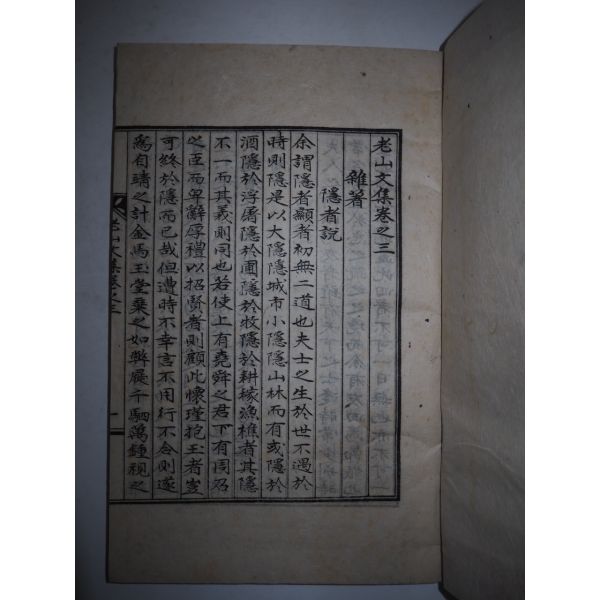 老山文集卷之三
雜著
隱者說
余謂隱者顯者初無二道也夫士之生於世不遇於
時則隱是以大隱隱城市小隱隱山林而有或隱於
酒隱於浮屠隱於圃隱於牧隱於耕稼漁樵者其隱
不一而其義則同也若使上有堯舜之君下有周召
之臣而卑辭厚禮以招賢者則顧此懷瑾抱玉者豈
可終於隱而已哉但遭時不幸言不用行不合則遂
爲自靖之計金馬玉堂棄之如弊屣千駟萬鍾視之
老山文集卷之三
一